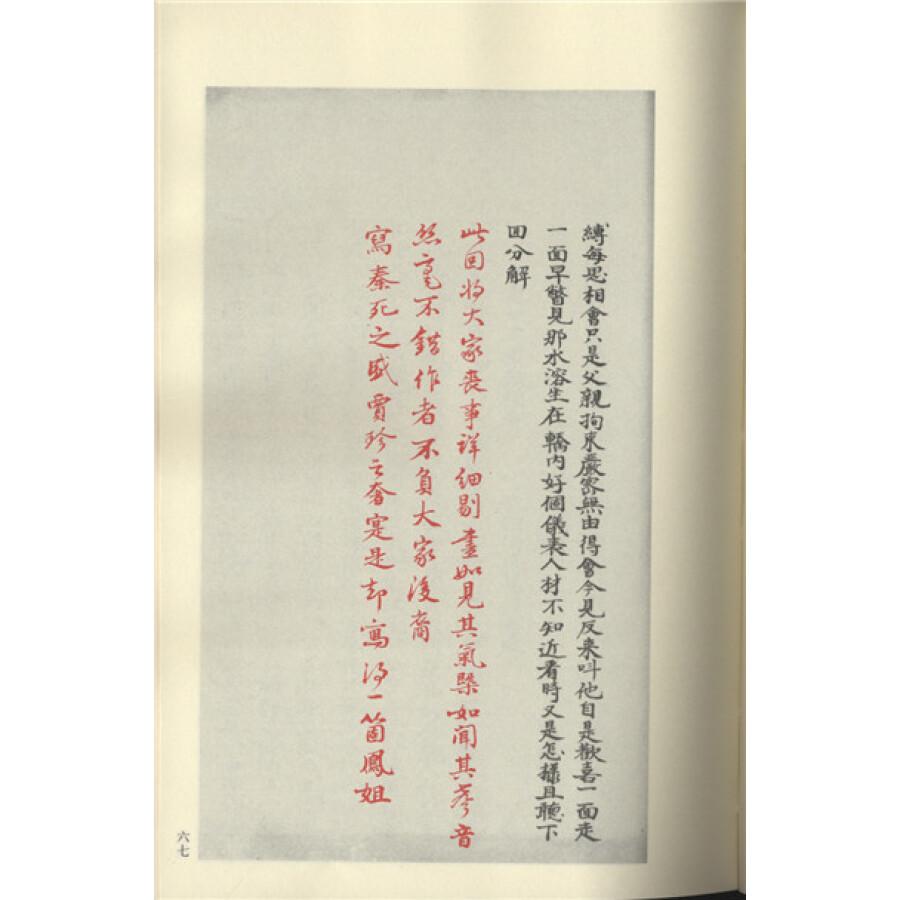 縛每思相會只是父親拘束嚴密無由得會今見反来叫他自是歡喜一面走
一面早瞥見那水溶坐在轎内好個儀表人材不知近看時又是怎樣且聽下
回分解
此回将大家喪事詳細剔盡如見其氣槩如聞其聲音
絲毫不錯作者不負大家後裔
寫秦死之盛賈珍之奢寔是却寫得一箇鳳姐
六七